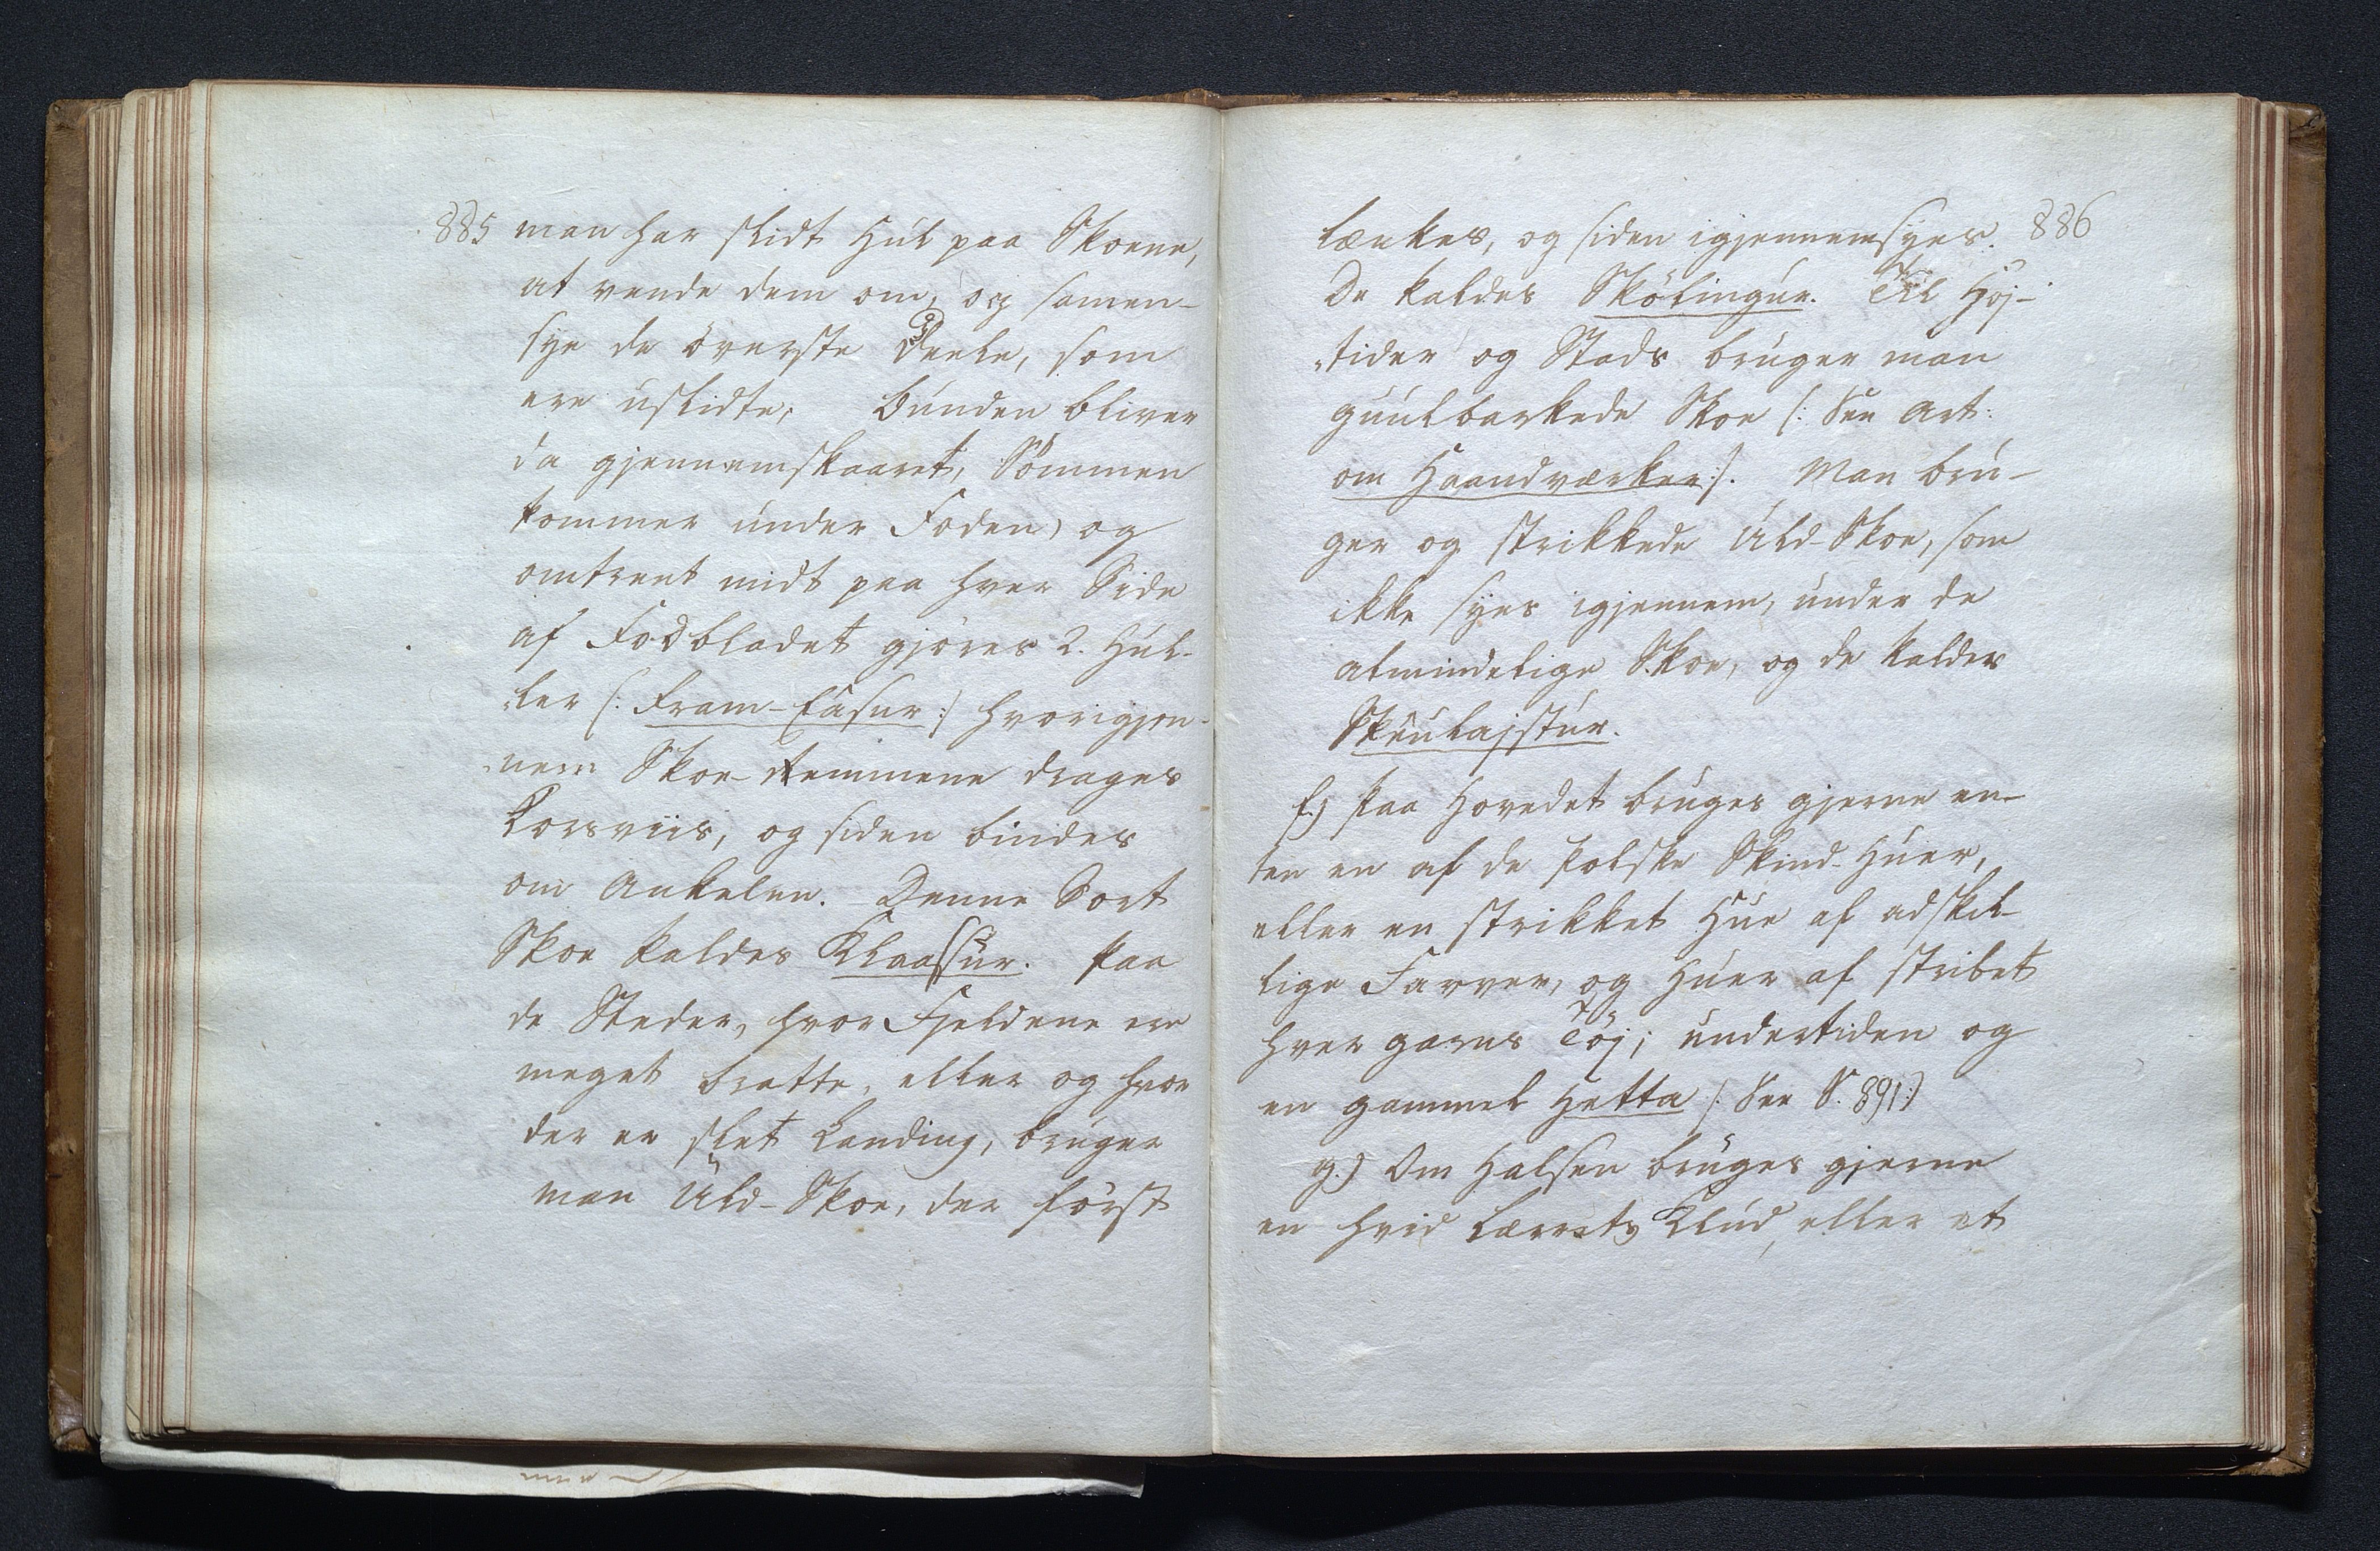 885 man har slidt Hul paa Skoene,
at vende dem om, og samen-
sye de överste Deele, som
ere uslidte; Bunden bliver
da gjennemskaaret, Sömmen
kommer under Foden, og
omtrent midt paa hver Side
af Fodbladet gjöres 2. Hul-
ler (: Fram-Eåsur :) hvorigjen-
nem Skoe-Remmene drages
Korsviis, og siden bindes
om Ankelen. Denne Sort
Skoe kaldes Klaassur. Paa
de Steder, hvor Fjeldene ere
meget bratte, eller og hvor
der er slet Landing, bruger
man Uld-Skoe, der först
886
lænkes, og siden igjennemsyes.
De kaldes Skölingur. Til Höj-
tider og Stads bruger man
guulbarkede Skoe (: See Art:
om Haandværker :). Man bru-
ger og strikkede Uld-Skoe, som
ikke syes igjennem, under de
almindelige Skoe, og de kaldes
Skeulajstur.
f.) Paa Hovedet bruges gjerne en-
ten en af de Polske Skind-Huer,
eller en strikket Hue af adskil-
lige Farver, og Huer af stribet
hver garns Töj; undertiden og
en gammel Hetta (: See S. 891:)
g.) Om Halsen bruges gjerne
en hvid Lærrets Klud, eller et